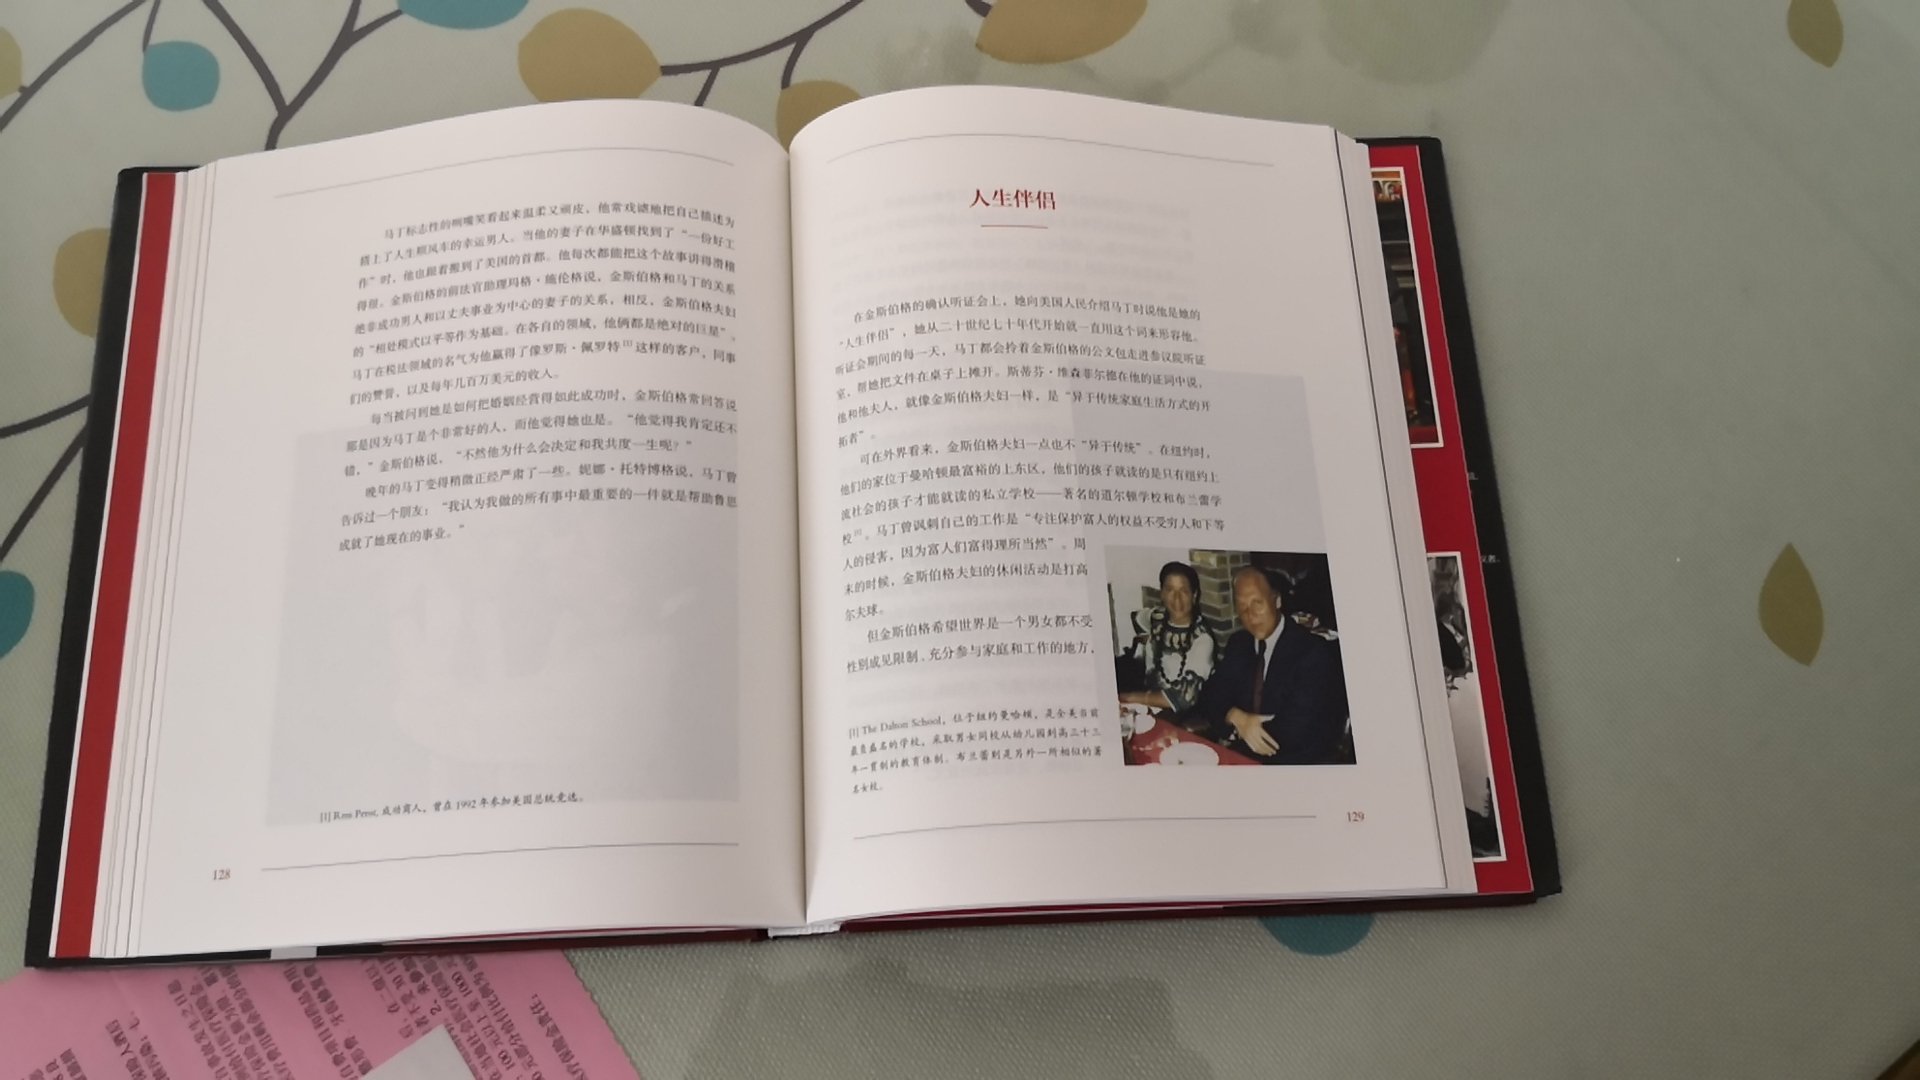 马丁标志性的咧嘴笑看起来温柔又顽皮，他常戏谑地把自己描述为
搭上了人生顺风车的幸运男人。当他的妻子在华盛顿找到了“一份好工
作”时，他也跟着搬到了美国的首都。他每次都能把这个故事讲得滑稽
得很。金斯伯格的前法官助理玛格·施伦格说，金斯伯格和马丁的关系
绝非成功男人和以丈夫事业为中心的妻子的关系，相反，金斯伯格夫妇
的“相处模式以平等作为基础。在各自的领域，他俩都是绝对的巨星”。
马丁在税法领域的名气为他赢得了像罗斯·佩罗特[1]这样的客户，同事
们的赞誉，以及每年几百万美元的收入。
每当被问到她是如何把婚姻经营得如此成功时，金斯伯格常回答说
那是因为马丁是个非常好的人，而他觉得她也是。“他觉得我肯定还不
错，”金斯伯格说，“不然他为什么会决定和我共度一生呢？”
晚年的马丁变得稍微正经严肃了一些。妮娜·托特博格说，马丁曾
告诉过一个朋友：“我认为我做的所有事中最重要的一件就是帮助鲁思
成就了她现在的事业。”
[1] Ross Perot, 成功商人，曾在1992年参加美国总统竞选。
128
人生伴侣
在金斯伯格的确认听证会上，她向美国人民介绍马丁时说他是她的
“人生伴侣”，她从二十世纪七十年代开始就一直用这个词来形容他。
听证会期间的每一天，马丁都会拎着金斯伯格的公文包走进参议院听证
室，帮她把文件在桌子上摊开。斯蒂芬·维森菲尔德在他的证词中说，
他和他夫人，就像金斯伯格夫妇一样，是“异于传统家庭生活方式的开
拓者”。
可在外界看来，金斯伯格夫妇一点也不“异于传统”。在纽约时，
他们的家位于曼哈顿最富裕的上东区，他们的孩子就读的是只有纽约上
流社会的孩子才能就读的私立学校——著名的道尔顿学校和布兰蕾学
校[1]。马丁曾讽刺自己的工作是“专注保护富人的权益不受穷人和下等
人的侵害，因为富人们富得理所当然”。周
末的时候，金斯伯格夫妇的休闲活动是打高
尔夫球。
但金斯伯格希望世界是一个男女都不受
性别成见限制、充分参与家庭和工作的地方，
[1] The Dalton School，位于纽约曼哈顿，是全美当前
最负盛名的学校，采取男女同校从幼儿园到高三十三
年一贯制的教育体制。布兰蕾则是另外一所相似的著
名女校。
129